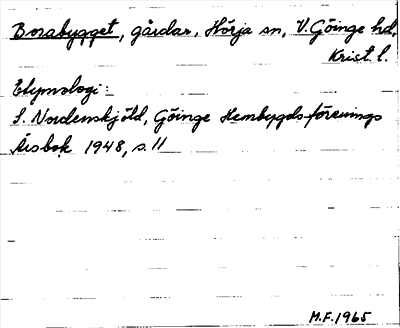 Borabygget, gårdar, Hörja sn, V. Göinge hd,
Krist. l.
Etymologi:
S. Nordenskjöld, Göinge Hembygdsförenings
Årsbok 1948, s. 11
M.F. 1965